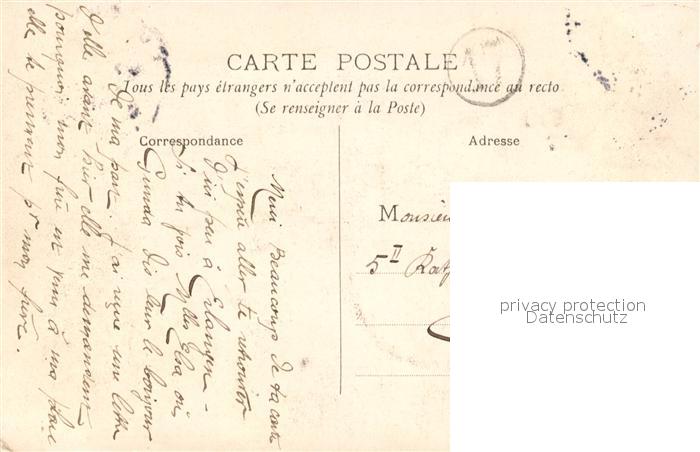 CARTE POSTALE
Tous les pays étrangers n'acceptent pas la correspondance au recto
(Se renseigner à la Poste)
Correspondance
Adresse
Merci Beaucoup de ta carte
J'espère aller te retrouver
D'ici peu à Erlangen -
Si tu vois Mlles Elsa ou
Gunda dis leur le bonjour
de ma part. J'ai reçu une lettre
d'elle avant hier elle me demandent
pourquoi mon frère est venu à ma place
elle te prennent pr mon frère.
Monsieu
5 II
privacy protection
Datenschutz